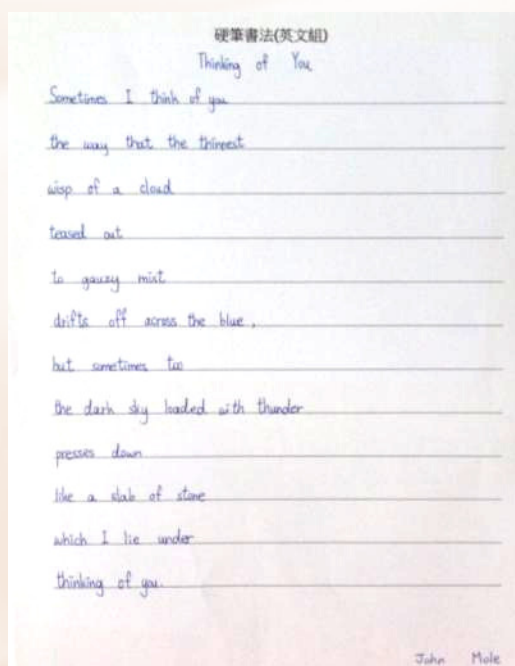 硬筆書法(英文組)
Thinking of You
Sometimes I think of you
the way that the thinnest
wisp of a cloud
teased out
to gauzy mist
drifts off across the blue,
but sometimes too
the dark sky loaded with thunder
presses down
like a slab of stone
which I lie under
thinking of you.
John Mole